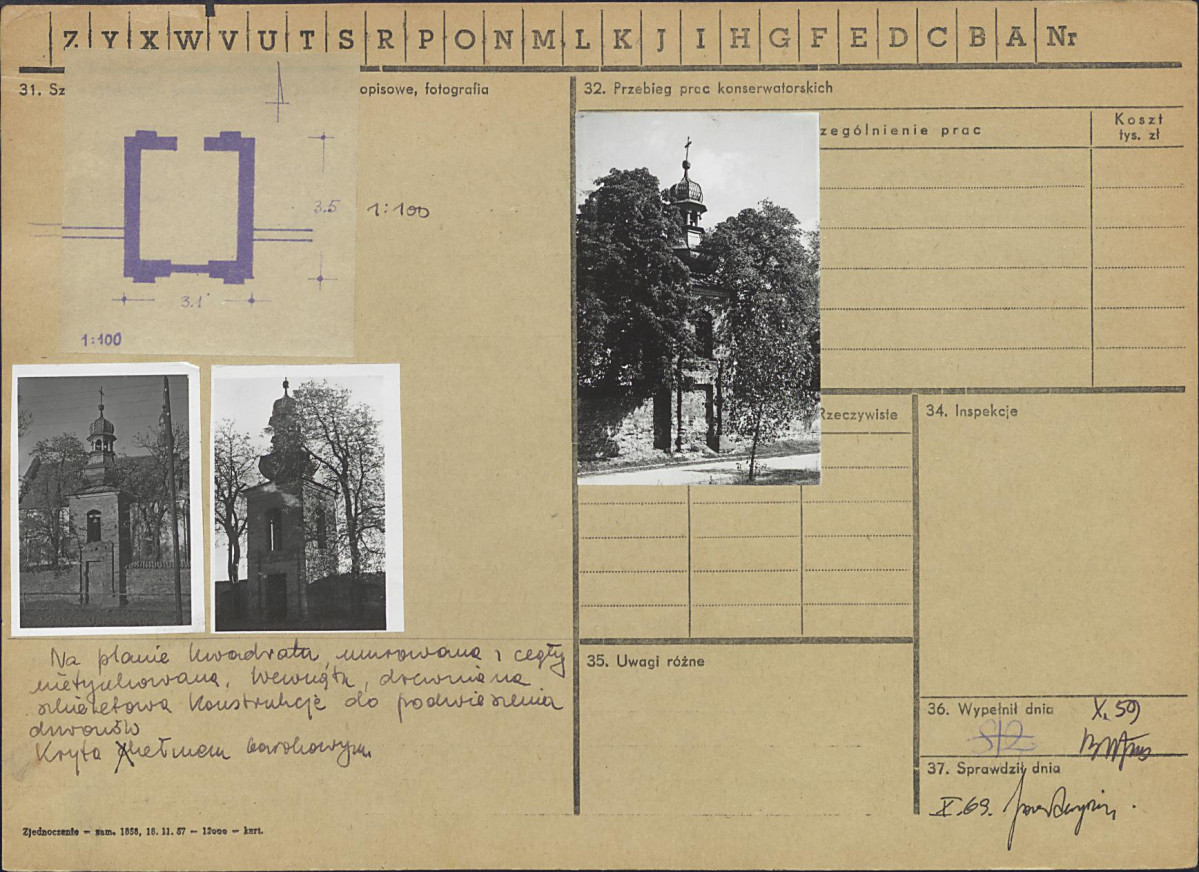 Z Y X W V U T S R P O N M L K J I H G F E D C B A Nr
31. Sz
opisowe, fotografia
3.5
1:100
3.1
1:100
Na planie kwadratu, murowana z cegły
nietynkowana. Wewnątrz, drewniana
szkieletowa konstrukcje do podwieszenia
dzwonów
Kryta hełmem barokowym.
Zjednoczenie – zam. 1858, 18. 11. 57 – 12000 – kart.
32. Przebieg prac konserwatorskich
zególnienie prac
Koszt
tys. zł
Rzeczywiste
34. Inspekcje
35. Uwagi różne
36. Wypełnił dnia
X. 59
37. Sprawdził dnia
X. 69.